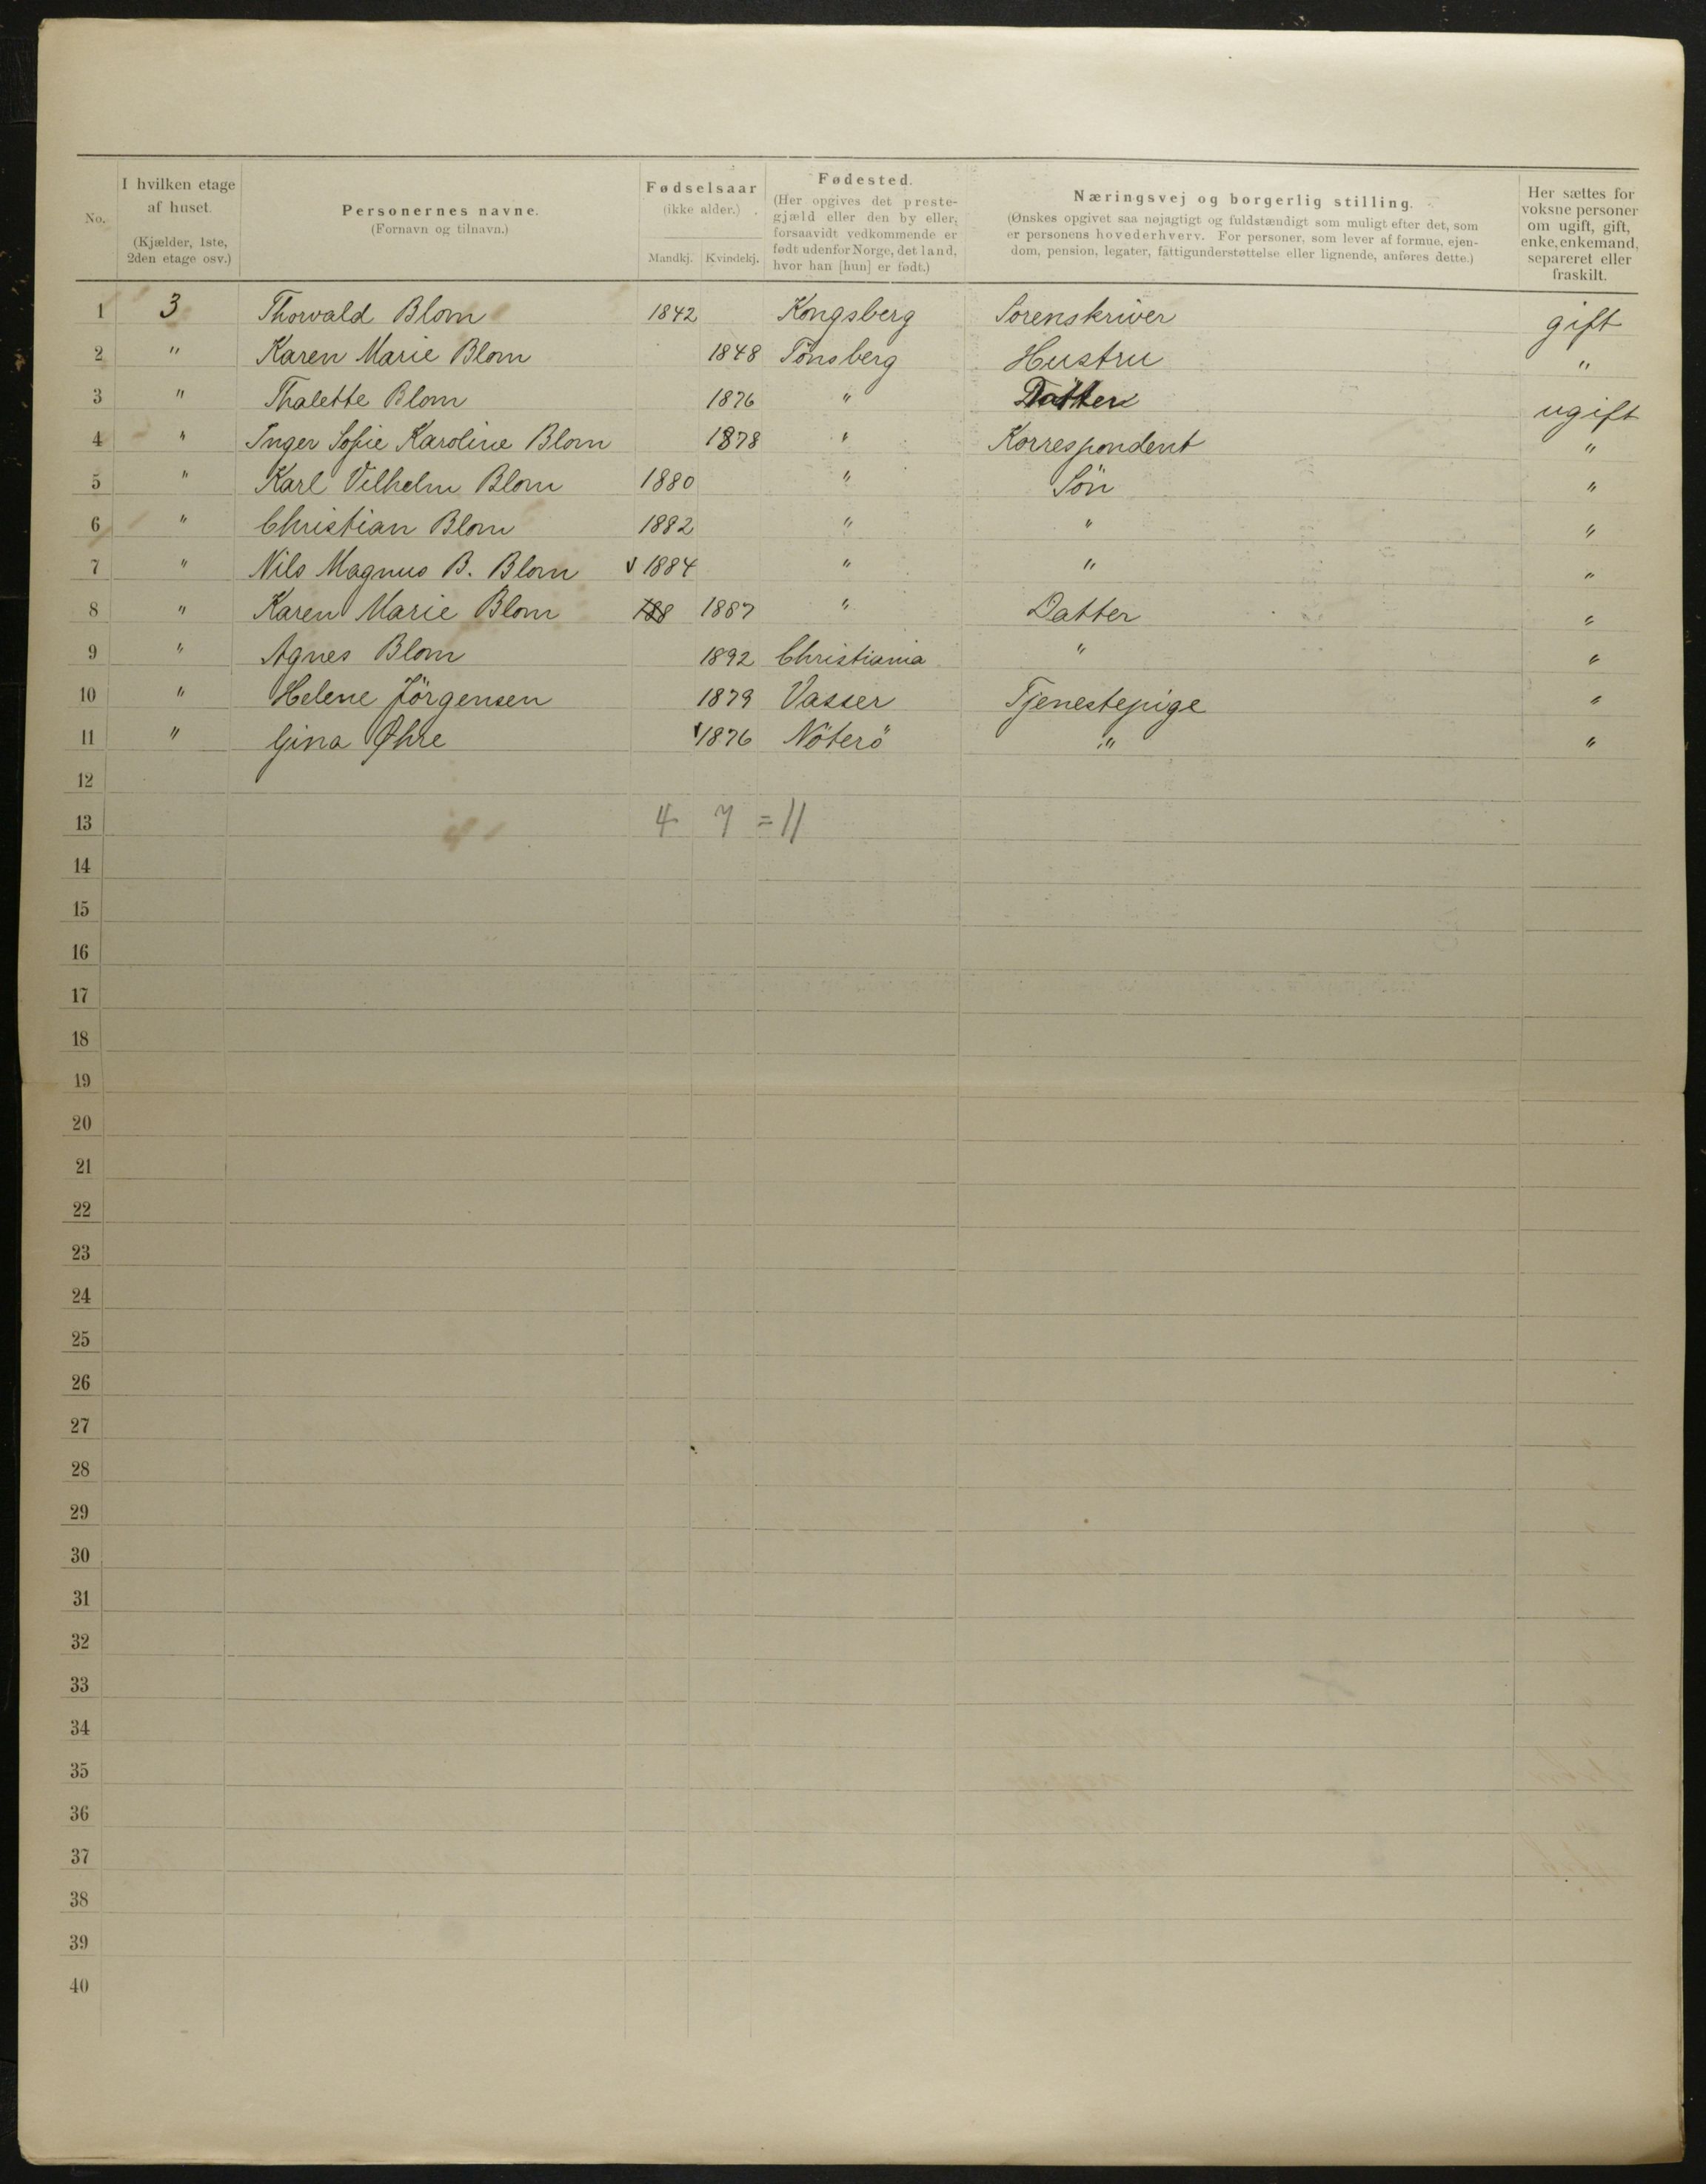 No.
I hvilken etage
af huset.
(Kjælder, 1ste,
2den etage osv.)
Personernes navne.
(Fornavn og tilnavn.)
Fødselsaar
(ikke alder.)
Mandkj. Kvindekj.
Fødested.
(Her opgives det preste-
gjæld eller den by eller,
forsaavidt vedkommende er
født udenfor Norge, det land,
hvor han [hun] er født.)
Næringsvej og borgerlig stilling.
(Ønskes opgivet saa nøjagtigt og fuldstændigt som muligt efter det, som
er personens hovederhverv. For personer, som lever af formue, ejen-
dom, pension, legater, fattigunderstøttelse eller lignende, anføres dette.)
Her sættes for
voksne personer
om ugift, gift,
enke, enkemand,
separeret eller
fraskilt.
1 3 Thorvald Blom 1842 Kongsberg Sorenskriver gift
2 " Karen Marie Blom 1848 Tönsberg Hustru "
3 " Thalette Blom 1876 " Datter ugift
4 " Inger Sofie Karoline Blom 1878 " Korrespondent "
5 " Karl Vilhelm Blom 1880 " Sön "
6 " Christian Blom 1882 " " "
7 " Nils Magnus B. Blom 1884 " " "
8 " Karen Marie Blom 188 1887 " Datter "
9 " Agnes Blom 1892 Christiania " "
10 " Helene Jörgensen 1879 Vasser Tjenestepige "
11 " Gina Øhre 1876 Nöterö " "
12
13 4 7 = 11
14
15
16
17
18
19
20
21
22
23
24
25
26
27
28
29
30
31
32
33
34
35
36
37
38
39
40